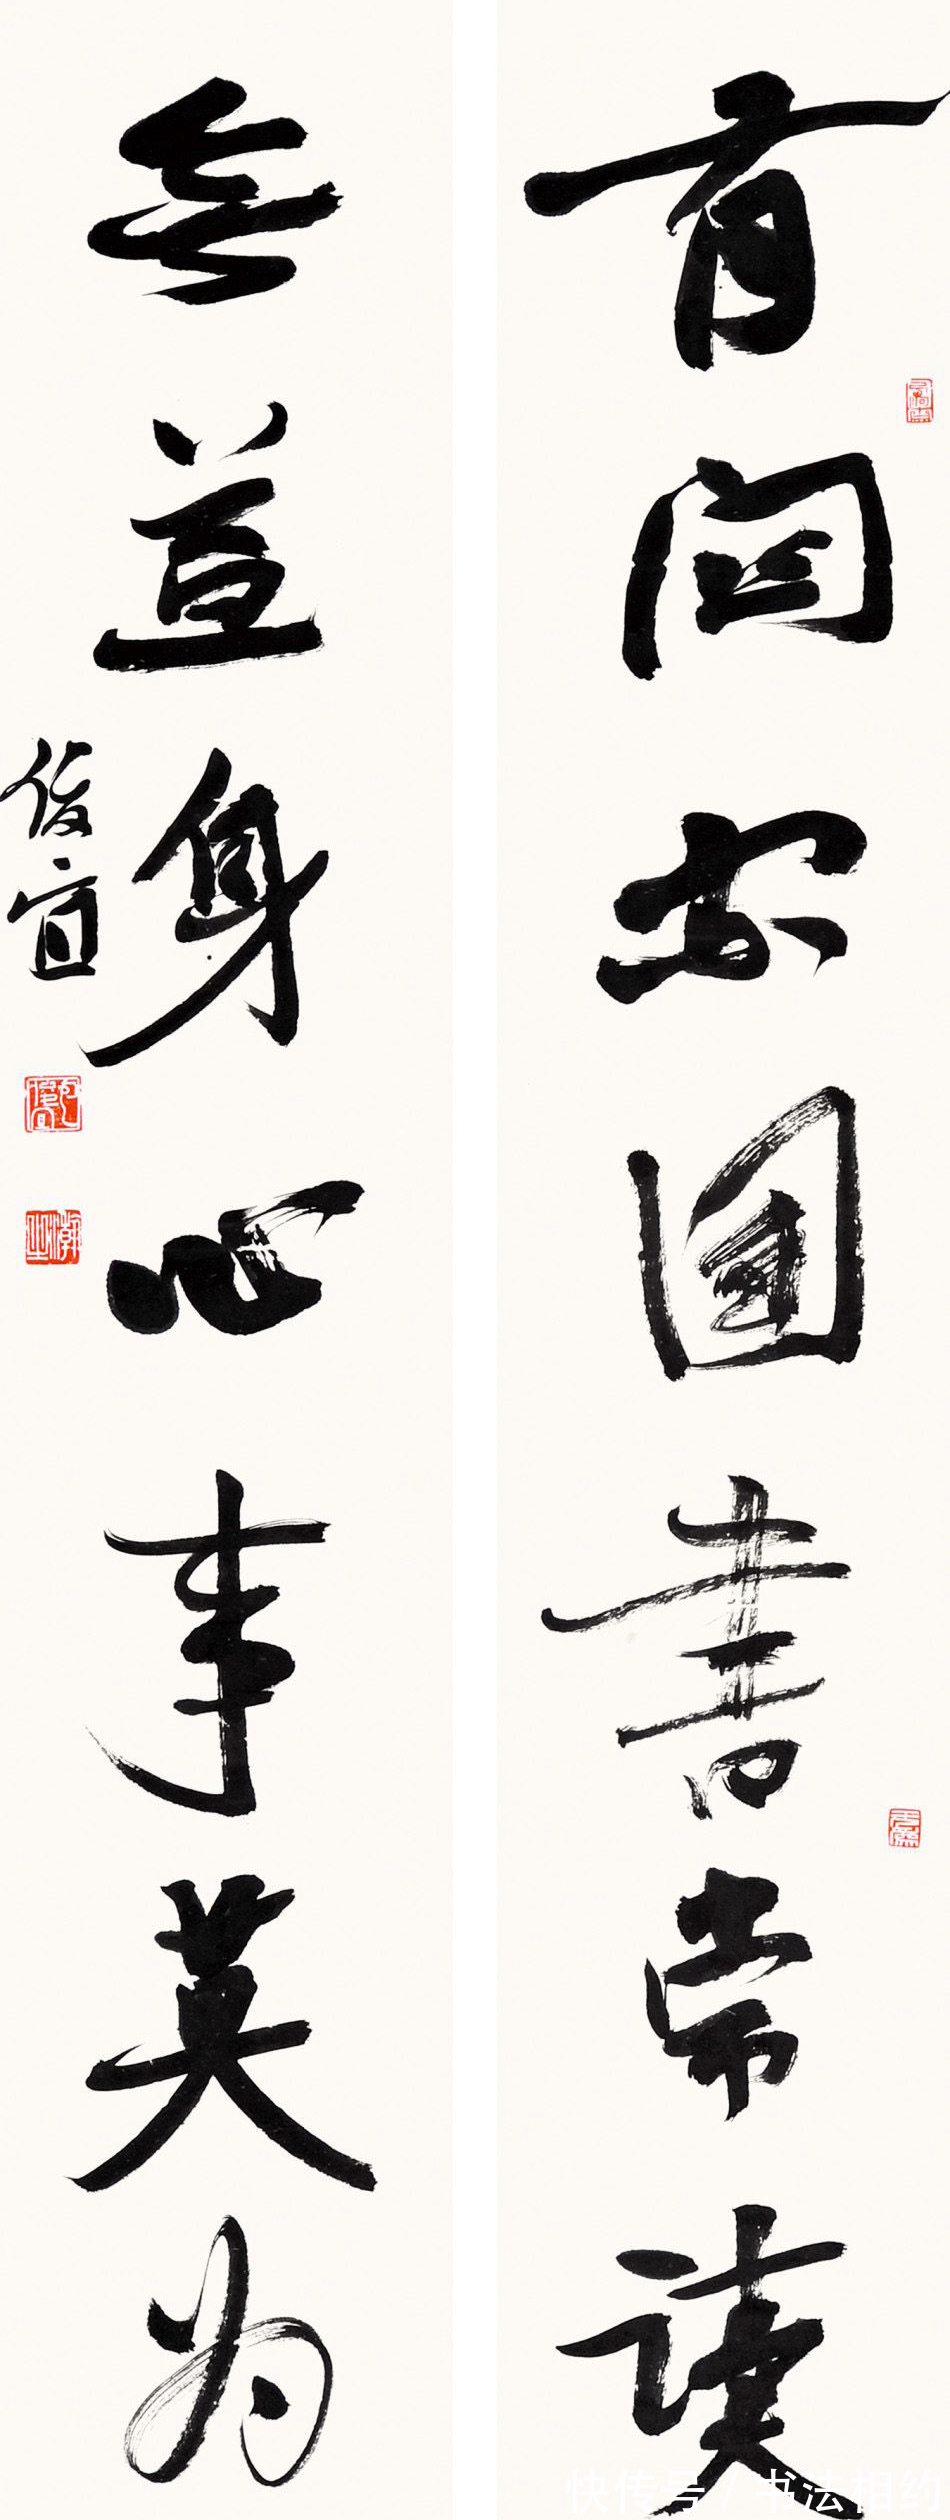 有関家國書常讀
無益身心事莫為
俊宜
快传号 / 书法相约